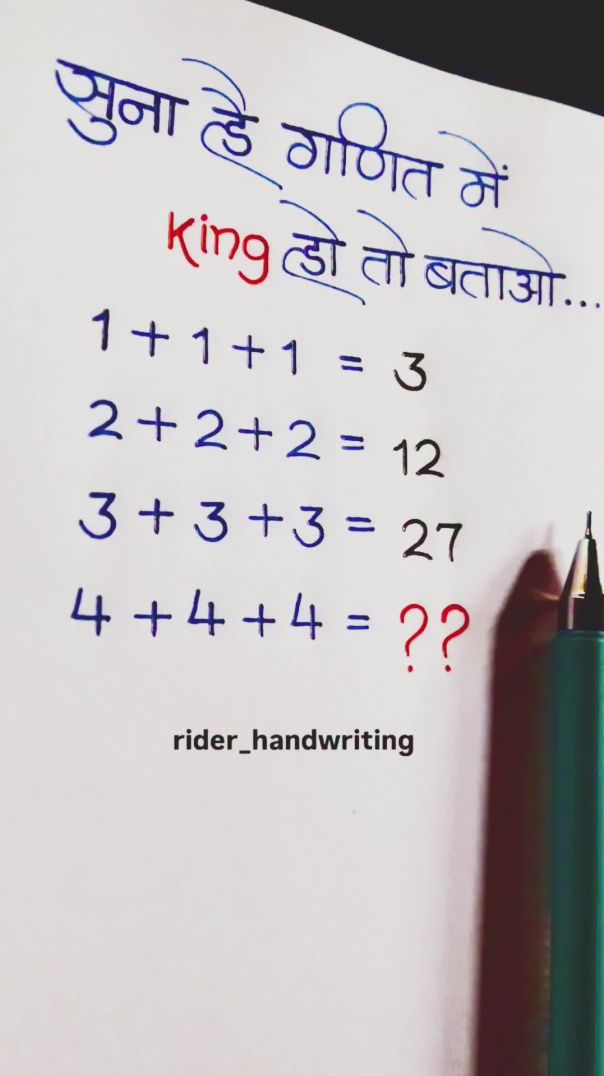 सुना है गणित में
King हो तो बताओ...
1 + 1 + 1 = 3
2 + 2 + 2 = 12
3 + 3 + 3 = 27
4 + 4 + 4 = ??
rider_handwriting